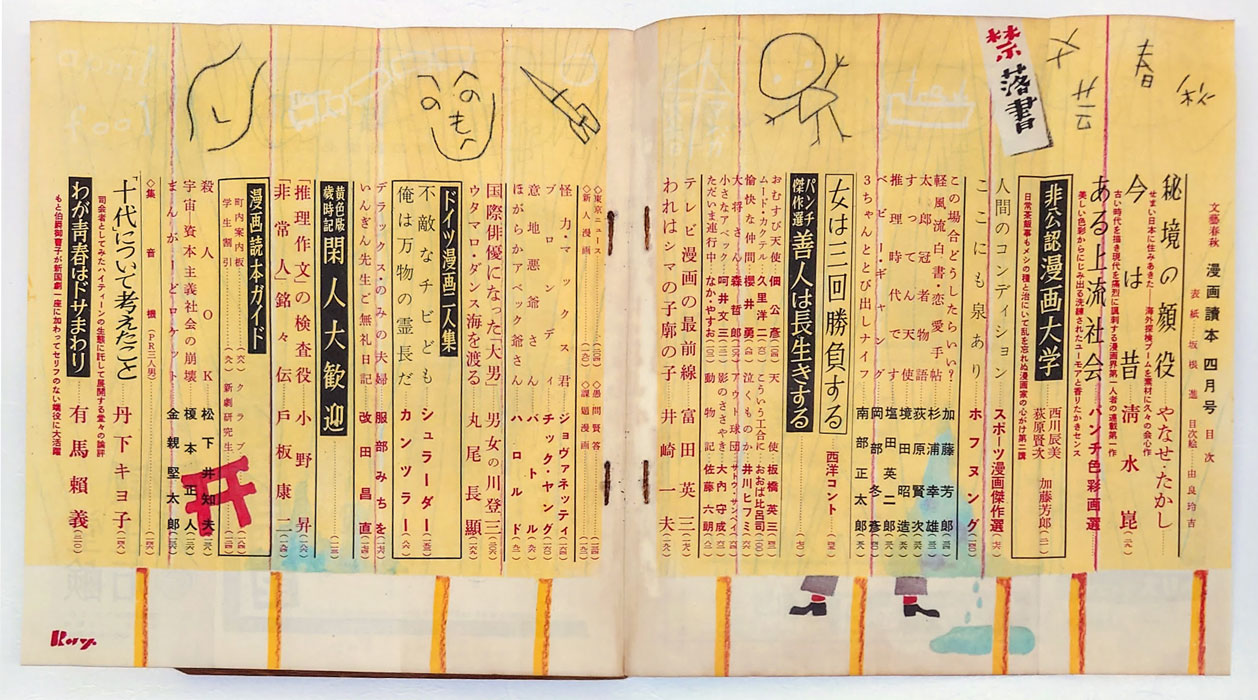 文藝春秋 漫画讀本 四月号 目次
表紙・坂根進 目次絵・由良玲吉
禁落書
春
秋
文
芸
秘境の顔役 やなせ・たかし
せまい日本に住みあきた――海外探検ブームを素材に久々の会心作
今は昔 清水崑
古い時代を描き現代を痛烈に諷刺する漫画界第一人者の連載第一作
ある上流社会 パンチ色彩画選
美しい色彩からにじみ出る洗練されたユーモアと香りたかきセンス
非公認漫画大学 西川辰美 荻原賢次 加藤芳郎
日常茶飯事もメシの種と治にいて乱を忘れぬ漫画家の心がけ第一課
人間のコンディション スポーツ漫画傑作選
ここにも泉あり ホフヌング
この場合どうしたらいい? 加藤芳郎
軽風流白書・恋愛手帖 杉浦幸雄
太郎冠者物語 荻原賢次
すってんてん天使 境田昭造
推理時代です 塩田英二郎
ベビー・ギャング 岡部冬彦
3ちゃんとび出しナイフ 南部正太郎
女は三回勝負する 西洋コント
パンチ傑作選 善人は長生きする
おむすび天使 佃公彦
ムード・カクテル 久里洋二
愉快な仲間 櫻井勇
大将さん 森哲郎
小さなアベック 呵井文三
ただいま連行中 なか・やすお
天使 板橋英三
こういう工合に おおば比呂司
泣くものか 井川ヒフミ
アウト球団 サトウ・サンペイ
影のささやき 大内守成
動物記 佐藤六朗
テレビ漫画の最前線 富田英三
われはシマの子廓の子 井崎一夫
◇東京ニュース
◇新人漫画
◇愚問賢答
◇課題漫画
怪力・マックタス君 ジョヴァネッティ
ブロンディ チック・ヤング
意地悪爺さん バトル
ほがらかアベック爺さん ハロルド
国際俳優になった「大男」 男女の川登三
ウタマロ・ダンス海を渡る 丸尾長顯
ドイツ漫画二人集
不敵なチビども シュラーダー
俺は万物の霊長だ カンツラー
デラックス・のみの夫婦 服部みちを
いんぎん先生ご無礼日記 改田昌直
黄色版歳時記 閑人大歓迎
「推理作文」の検査役 小野昇
「非常人」銘々伝 戸板康二
漫画読本ガイド
町内案内板
学生罷引
クラブ
新劇研究生
殺人OK 松下井知夫
宇宙資本主義社会の崩壊 榎本正人
まんがーどロケット 金親堅太郎
◇集音機(PR三人男)
「十代について考えたこと」 丹下キヨ子
司会者としてみたハイティーンの生態に託して展開する堂々の論評
わが青春はドサまわり 有馬頼義
もと伯爵御曹子が新国劇一座に加わってセリフのない端役に大活躍
april
fool